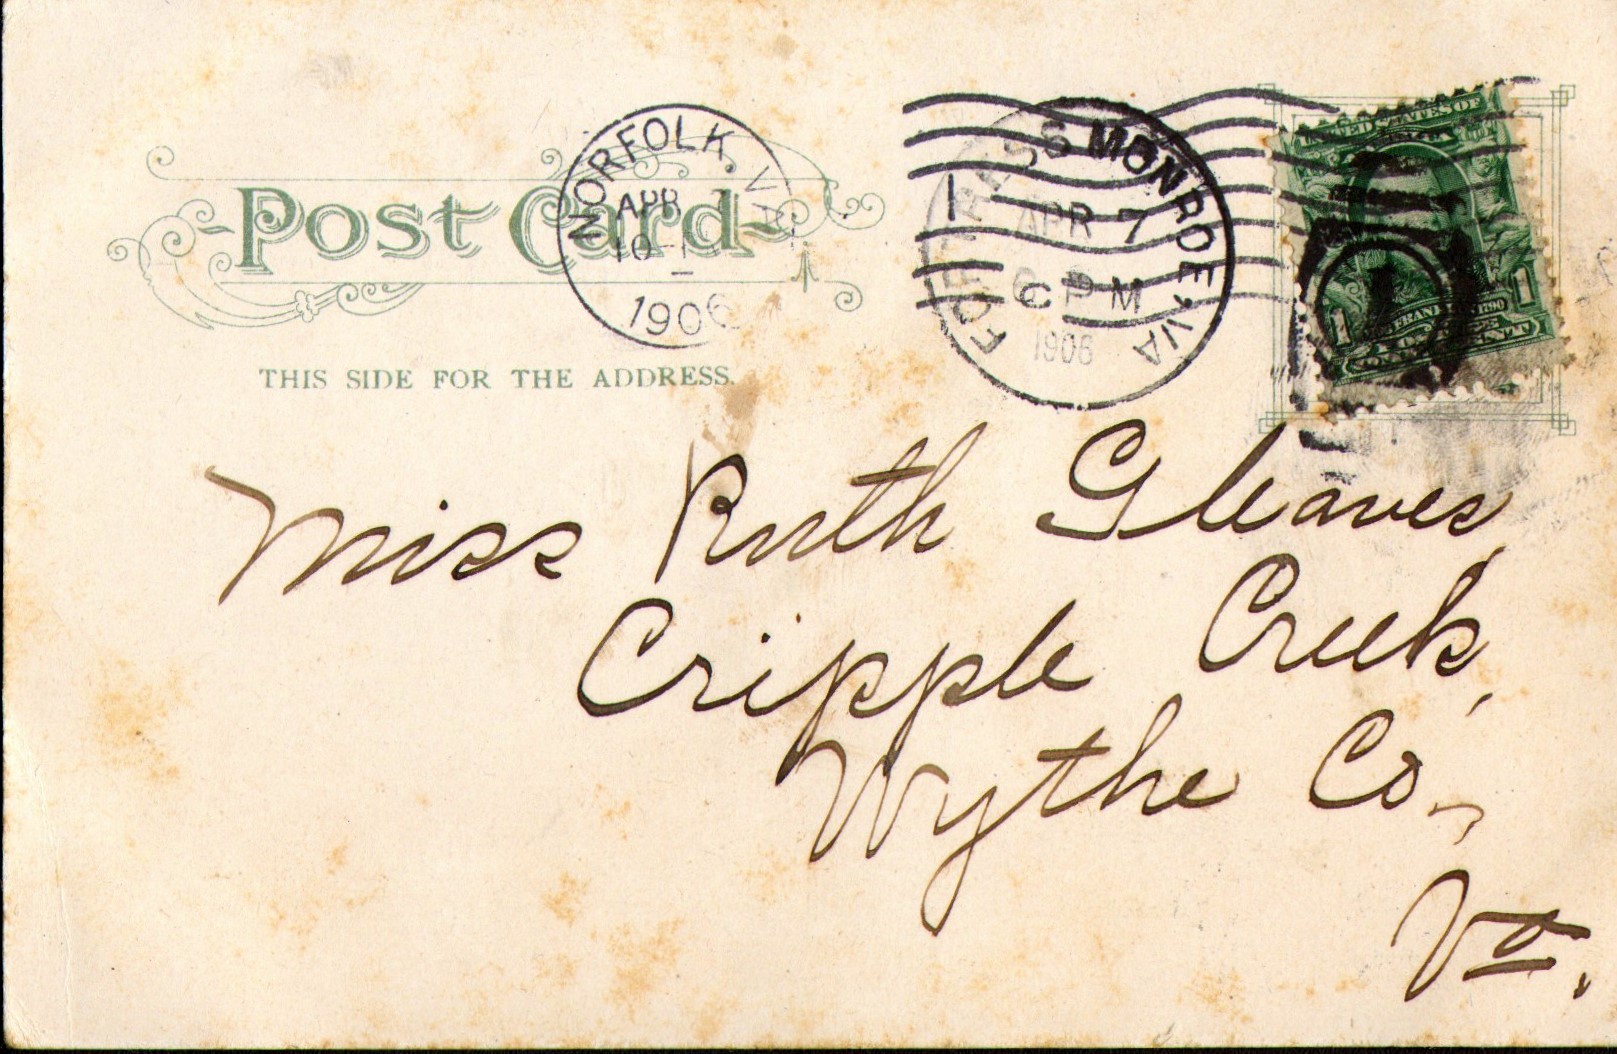 Post Card
THIS SIDE FOR THE ADDRESS.
NORFOLK, VA
APR
10
1906
FORTRESS MONROE, VA
APR 7
6 PM
1906
UNITED STATES OF
FRANKLIN 1790
1 1
Miss Ruth Gleaves,
Cripple Creek,
Wythe Co.,
Va.